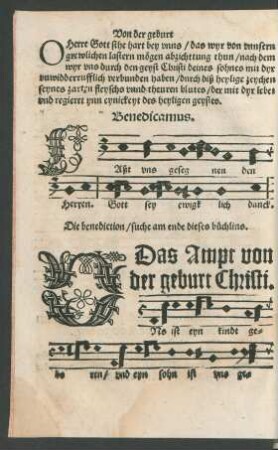 Von der geburt
O Herre Gott sthe hart bey vnns / das wyr von vnnsern
grewlichen lastern mögen abzichtung thun / nach dem
wyr vns durch den geyst Christi deines sohnes mit dyr
vnwidderrufflich verbunden haben / durch diß heylige zeychen
seynes zarten fleyschs vnnd theuren blutes / der mit dyr lebet
vnd regieret ynn eynickeyt des heyligen geystes.
Benedicamus.
LAßt vns geseg nen den
Herren. Gott sey ewigk lich danck.
Die benediction / suche am ende dieses büchlins.
Das Ampt von
der geburt Christi.
UNs ist eyn kindt ge-
bo ren / vnd eyn sohn ist vns ge-